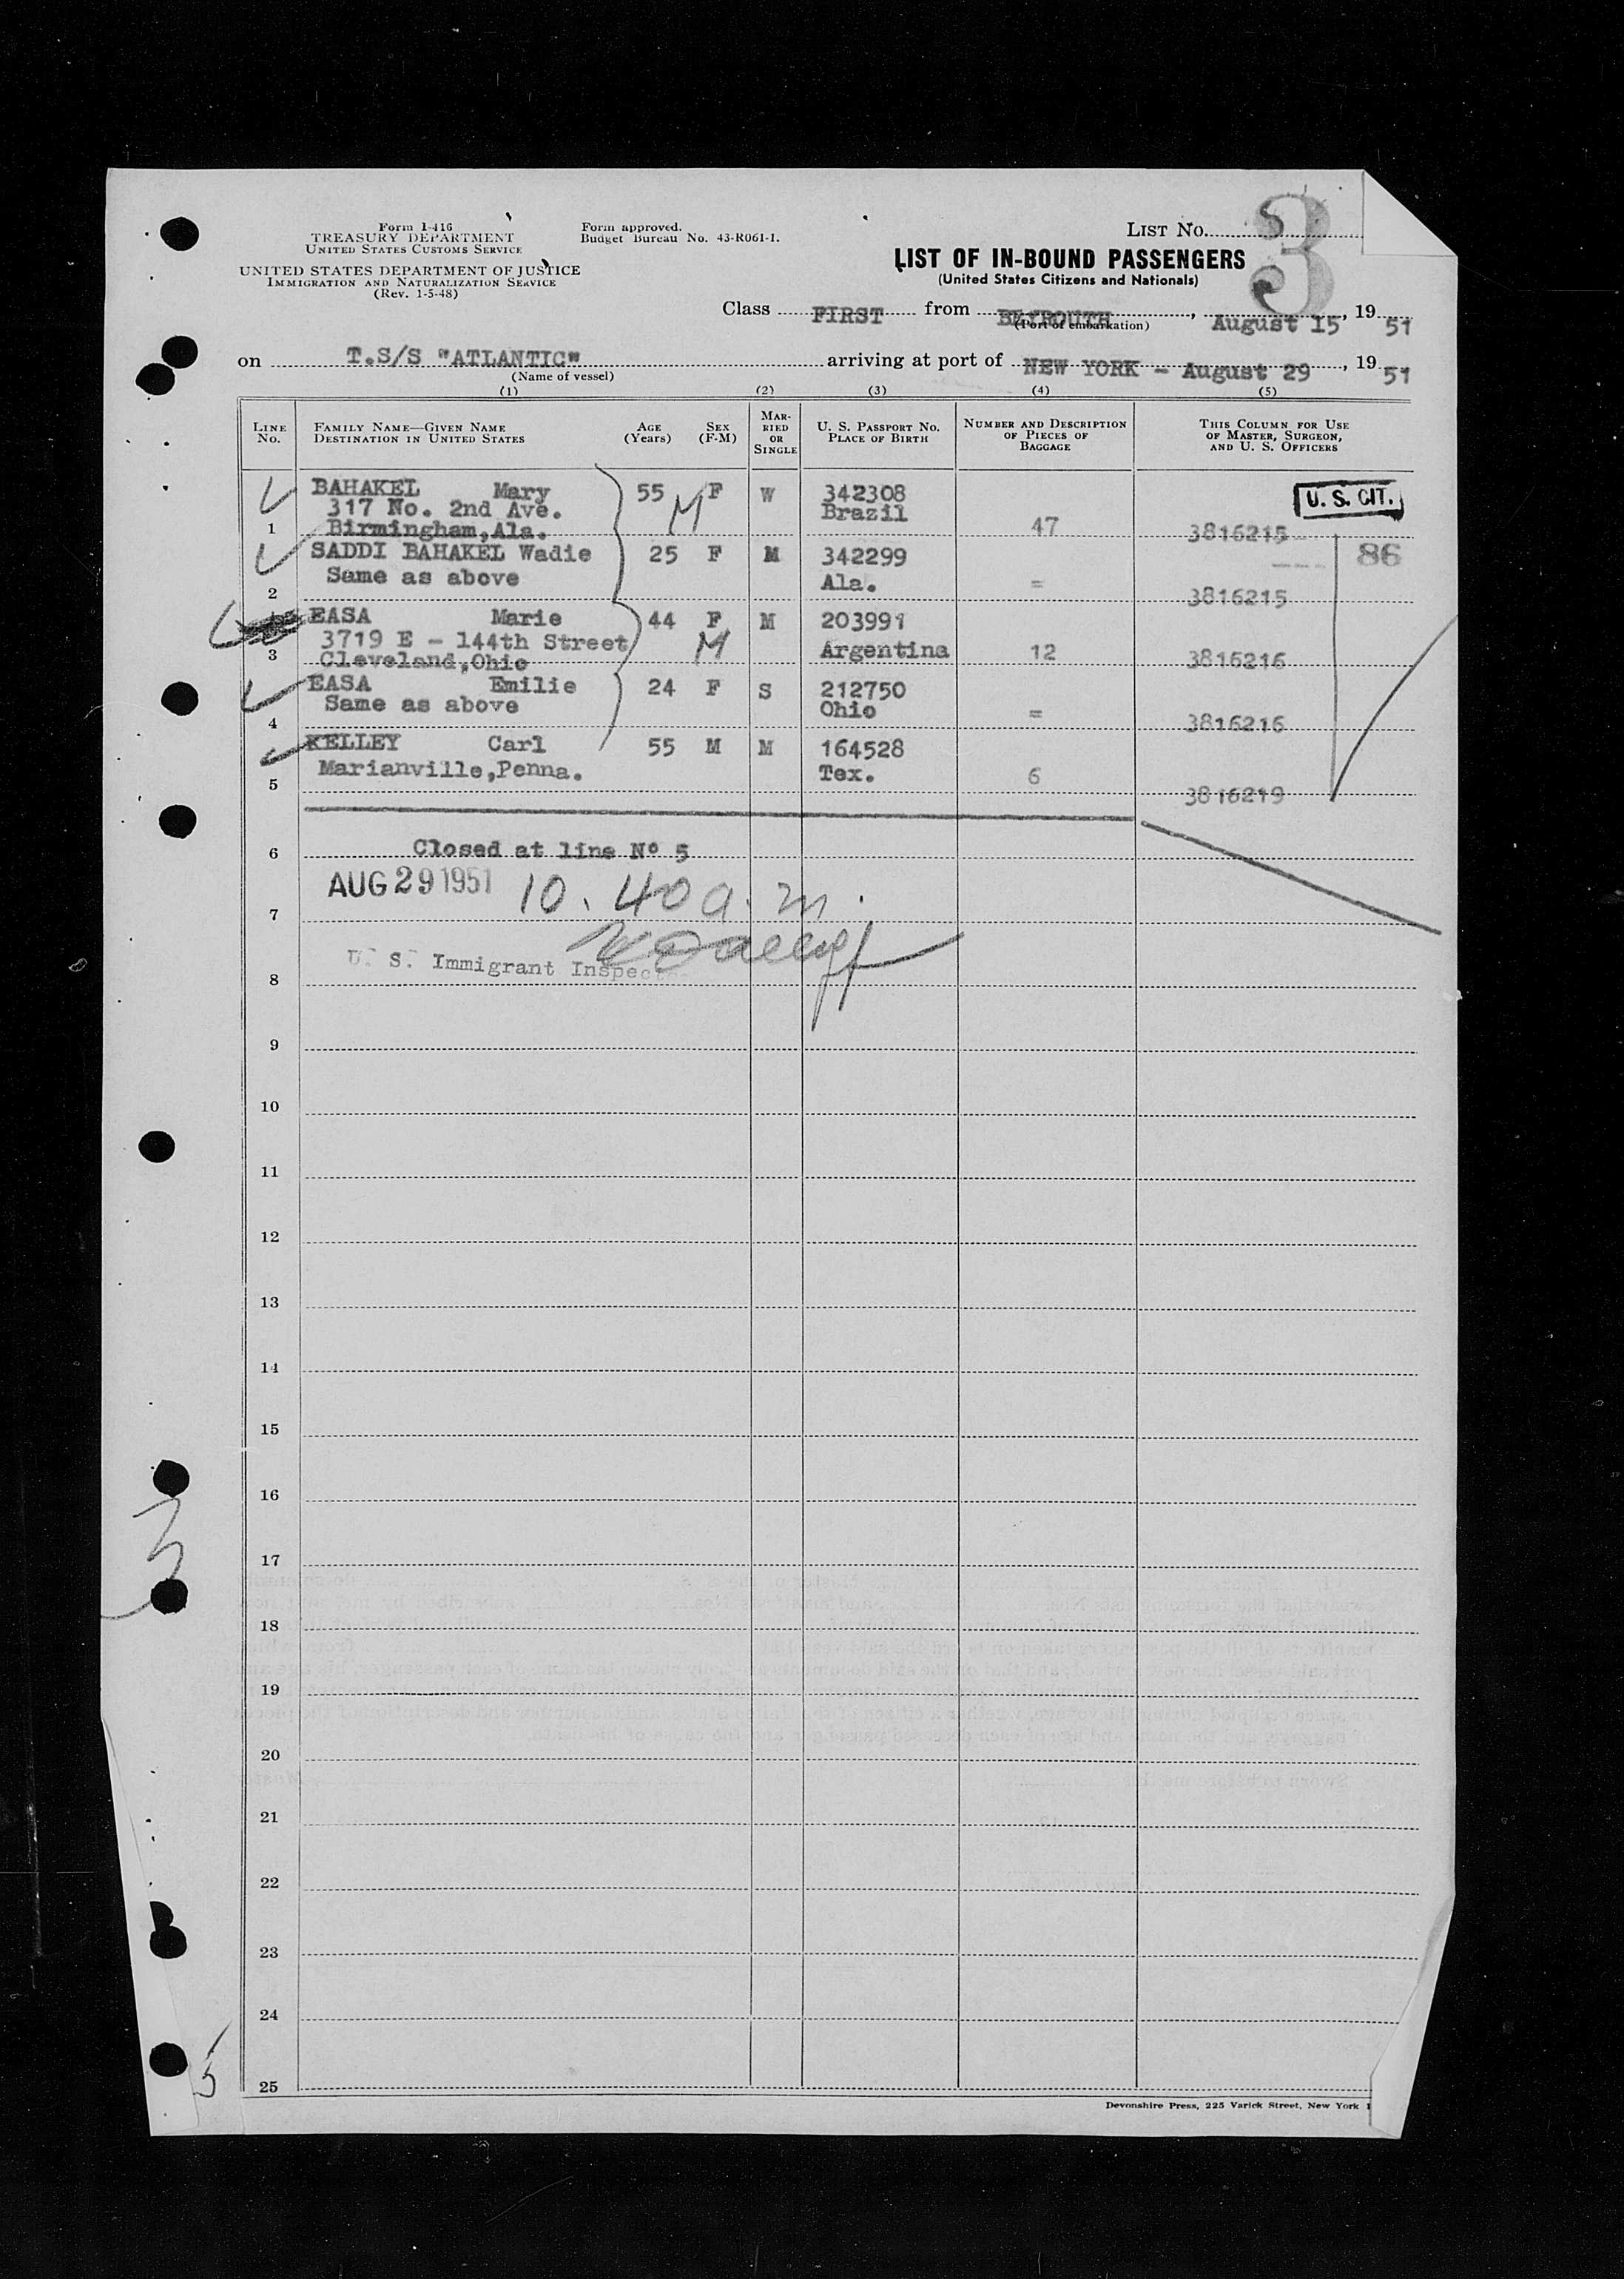 Form I-416
TREASURY DEPARTMENT
UNITED STATES CUSTOMS SERVICE
UNITED STATES DEPARTMENT OF JUSTICE
IMMIGRATION AND NATURALIZATION SERVICE
(Rev. 1-5-48)
Form approved.
Budget Bureau No. 43-R061-1.
LIST NO.
3
LIST OF IN-BOUND PASSENGERS
(United States Citizens and Nationals)
Class FIRST from BEYROUTH, August 15, 19 51
(Port of embarkation)
on T.S/S "ATLANTIC" arriving at port of NEW YORK - August 29, 19 51
(Name of vessel)
(1) (2) (3) (4) (5)
LINE NO. FAMILY NAME—GIVEN NAME DESTINATION IN UNITED STATES AGE (Years) SEX (F-M) MARRIED OR SINGLE U. S. PASSPORT NO. PLACE OF BIRTH NUMBER AND DESCRIPTION OF PIECES OF BAGGAGE THIS COLUMN FOR USE OF MASTER, SURGEON, AND U. S. OFFICERS
BAHAKEL Mary 55 F W 342308 U. S. CIT.
317 No. 2nd Ave. M Brazil
1 Birmingham,Ala. 47 3816215
SADDI BAHAKEL Wadie 25 F M 342299 86
Same as above Ala. =
2 3816215
EASA Marie 44 F M 203991
3719 E - 144th Street M Argentina 12
3 Cleveland,Ohio 3816216
EASA Emilie 24 F S 212750
Same as above Ohio =
4 3816216
KELLEY Carl 55 M M 164528
Marianville,Penna. Tex. 6
5 3816219
6 Closed at line Nº 5
AUG 29 1951 10.40 a.m.
7
U. S. Immigrant Inspector
8
9
10
11
12
13
14
15
16
3
17
18
19
20
21
22
23
24
5
25
Devonshire Press, 225 Varick Street, New York